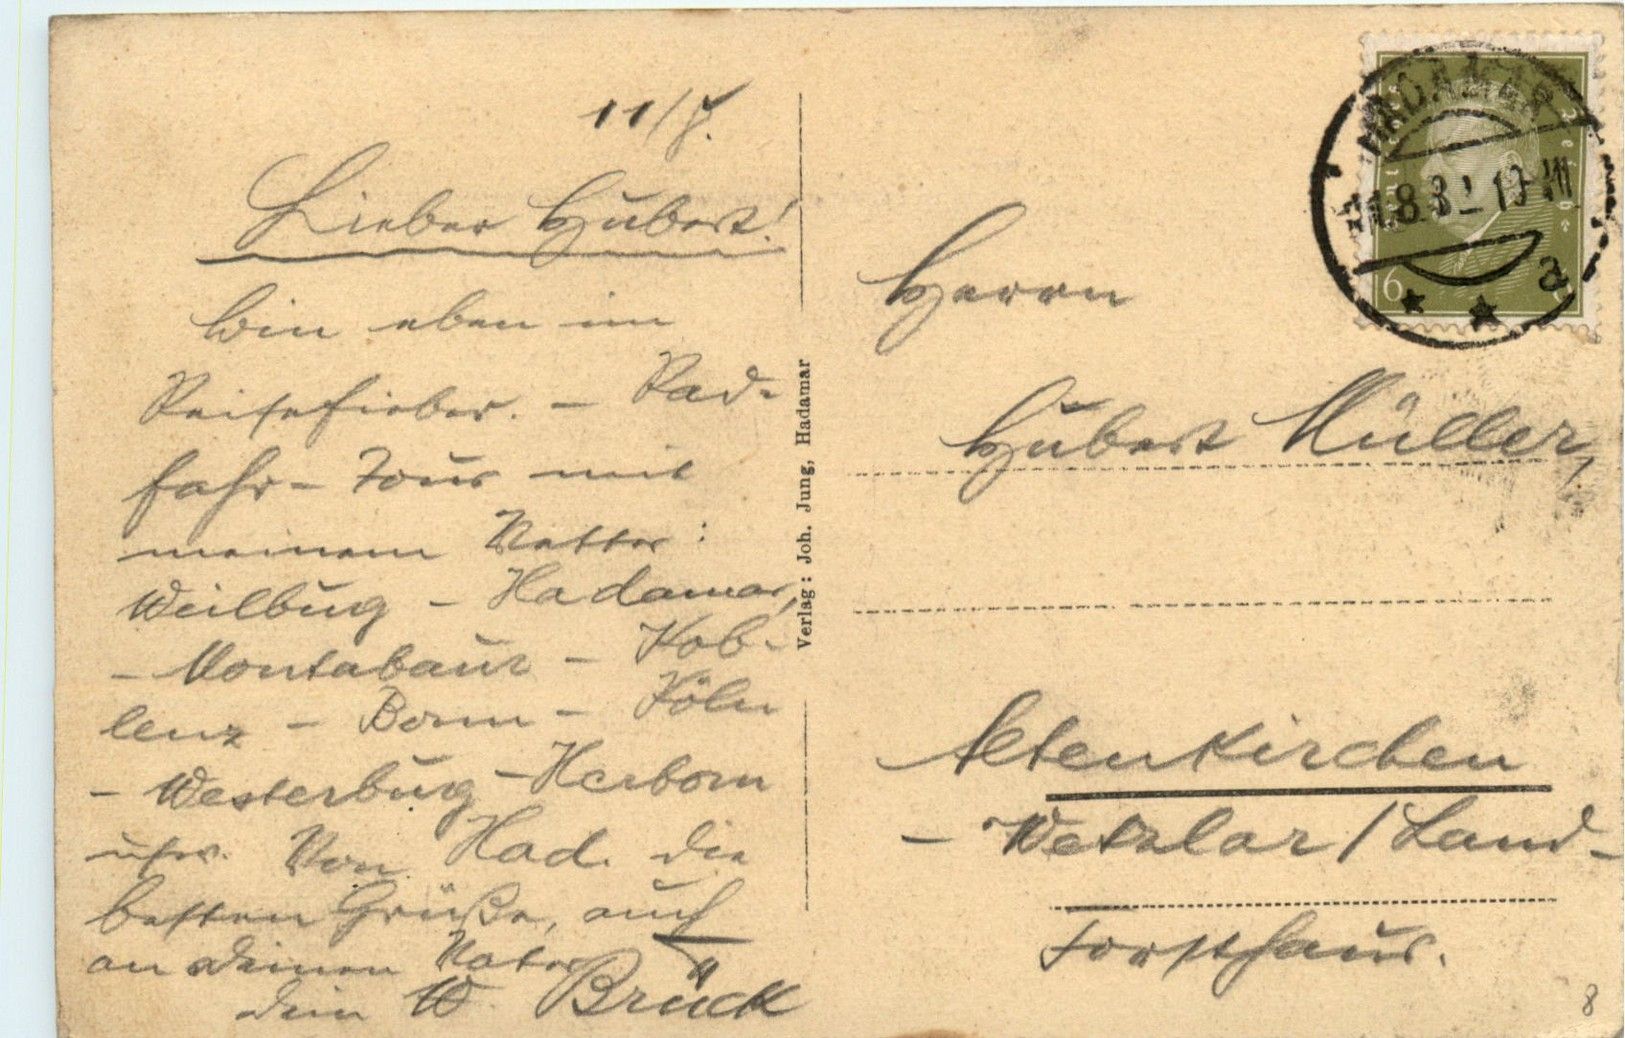 11/8.
Lieber Hubert!
Bin eben im
Reisefieber. – Rad-
fahr-Tour mit
meinem Vetter:
Weilbug – Hadamar,
– Montabaur – Kob-
lenz – Bonn – Köln
– Westerbug – Herborn
usw. Von Had. die
besten Grüße, auch
an deinen Vater
dein W. Brück
Verlag: Joh. Jung, Hadamar
HADAMAR
11.8.3 10-
a
Deutsches Reich
6
Herrn
Hubert Müller,
Altenkirchen
– Wetzlar / Land –
Forsthaus.
8